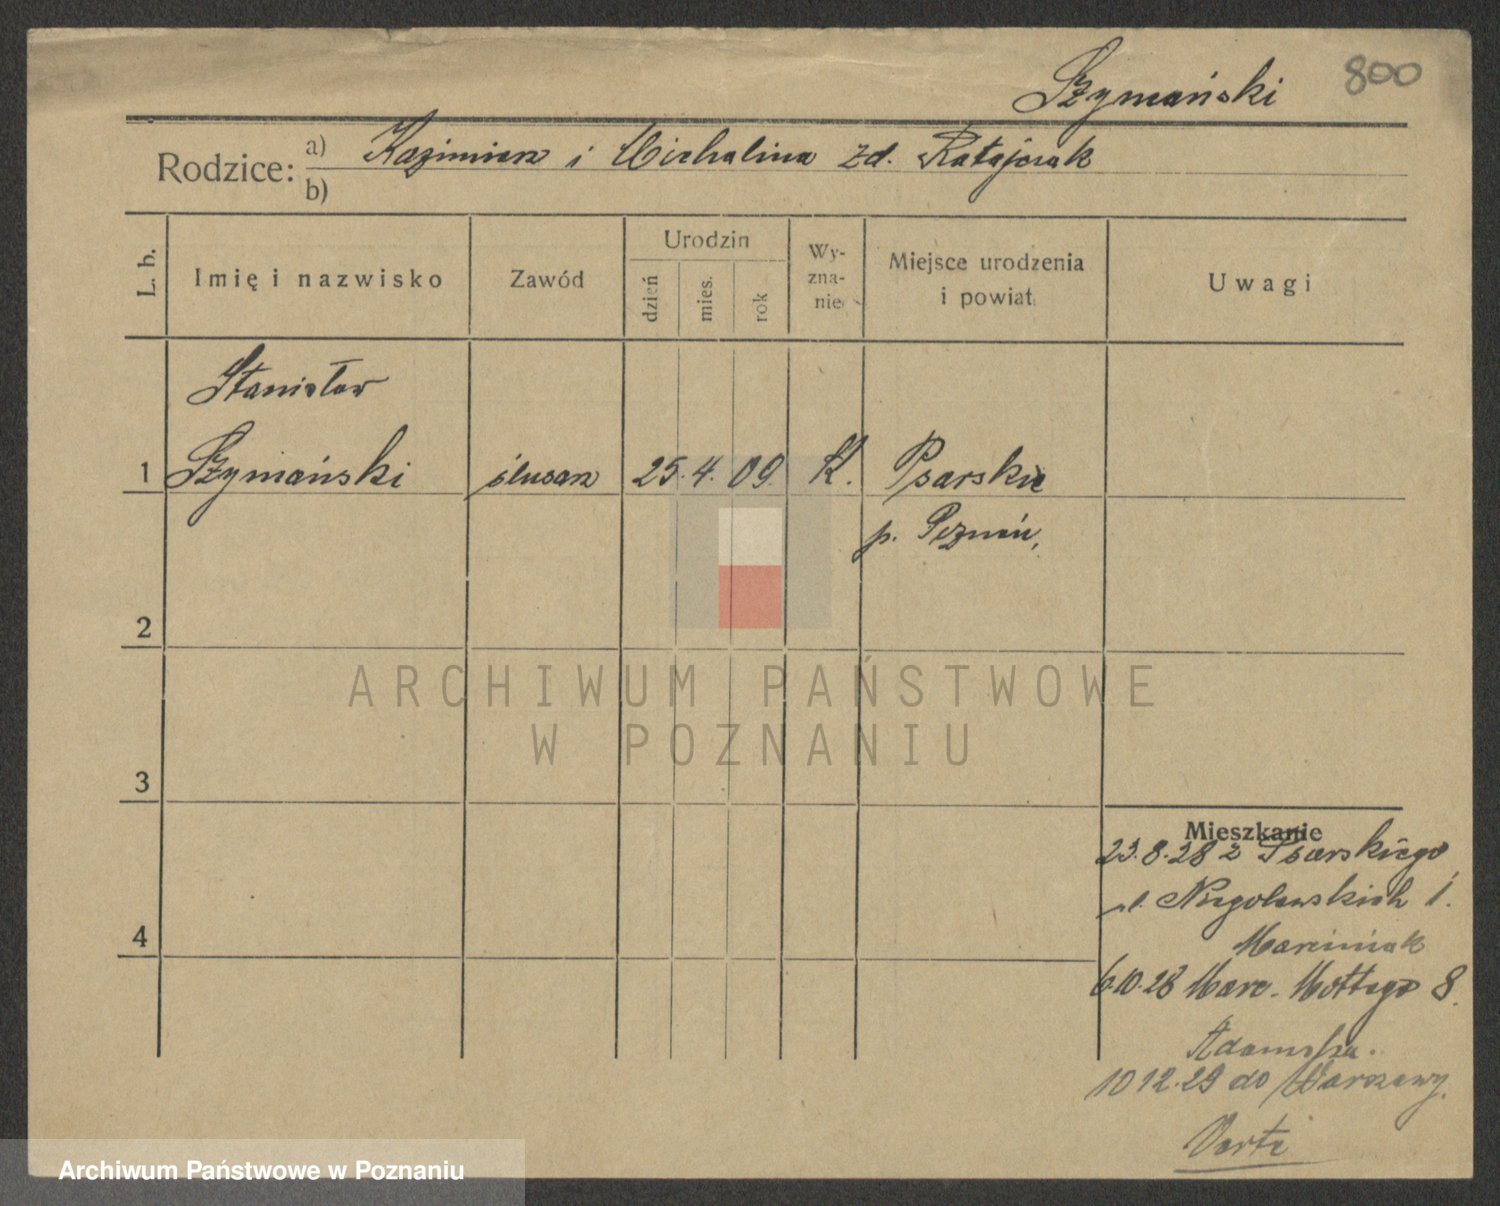 Szymański 800
Rodzice: a) Kazimierz i Michalina zd. Ratajczak
b)
L. b. Imię i nazwisko Zawód Urodzin dzień mies. rok Wy-zna-nie Miejsce urodzenia i powiat Uwagi
Stanisław
1 Szymański ślusarz 25. 4. 09. K. Psarskie
p. Poznań,
2
ARCHIWUM PAŃSTWOWE
W POZNANIU
3
Mieszkanie
23.8.28 z Psarskiego
4 Niegolewskich 1.
Marciniak
6.10.28 Marc. Mottego 8.
Adamska.
10 12.29 do Warszawy.
Verte
Archiwum Państwowe w Poznaniu